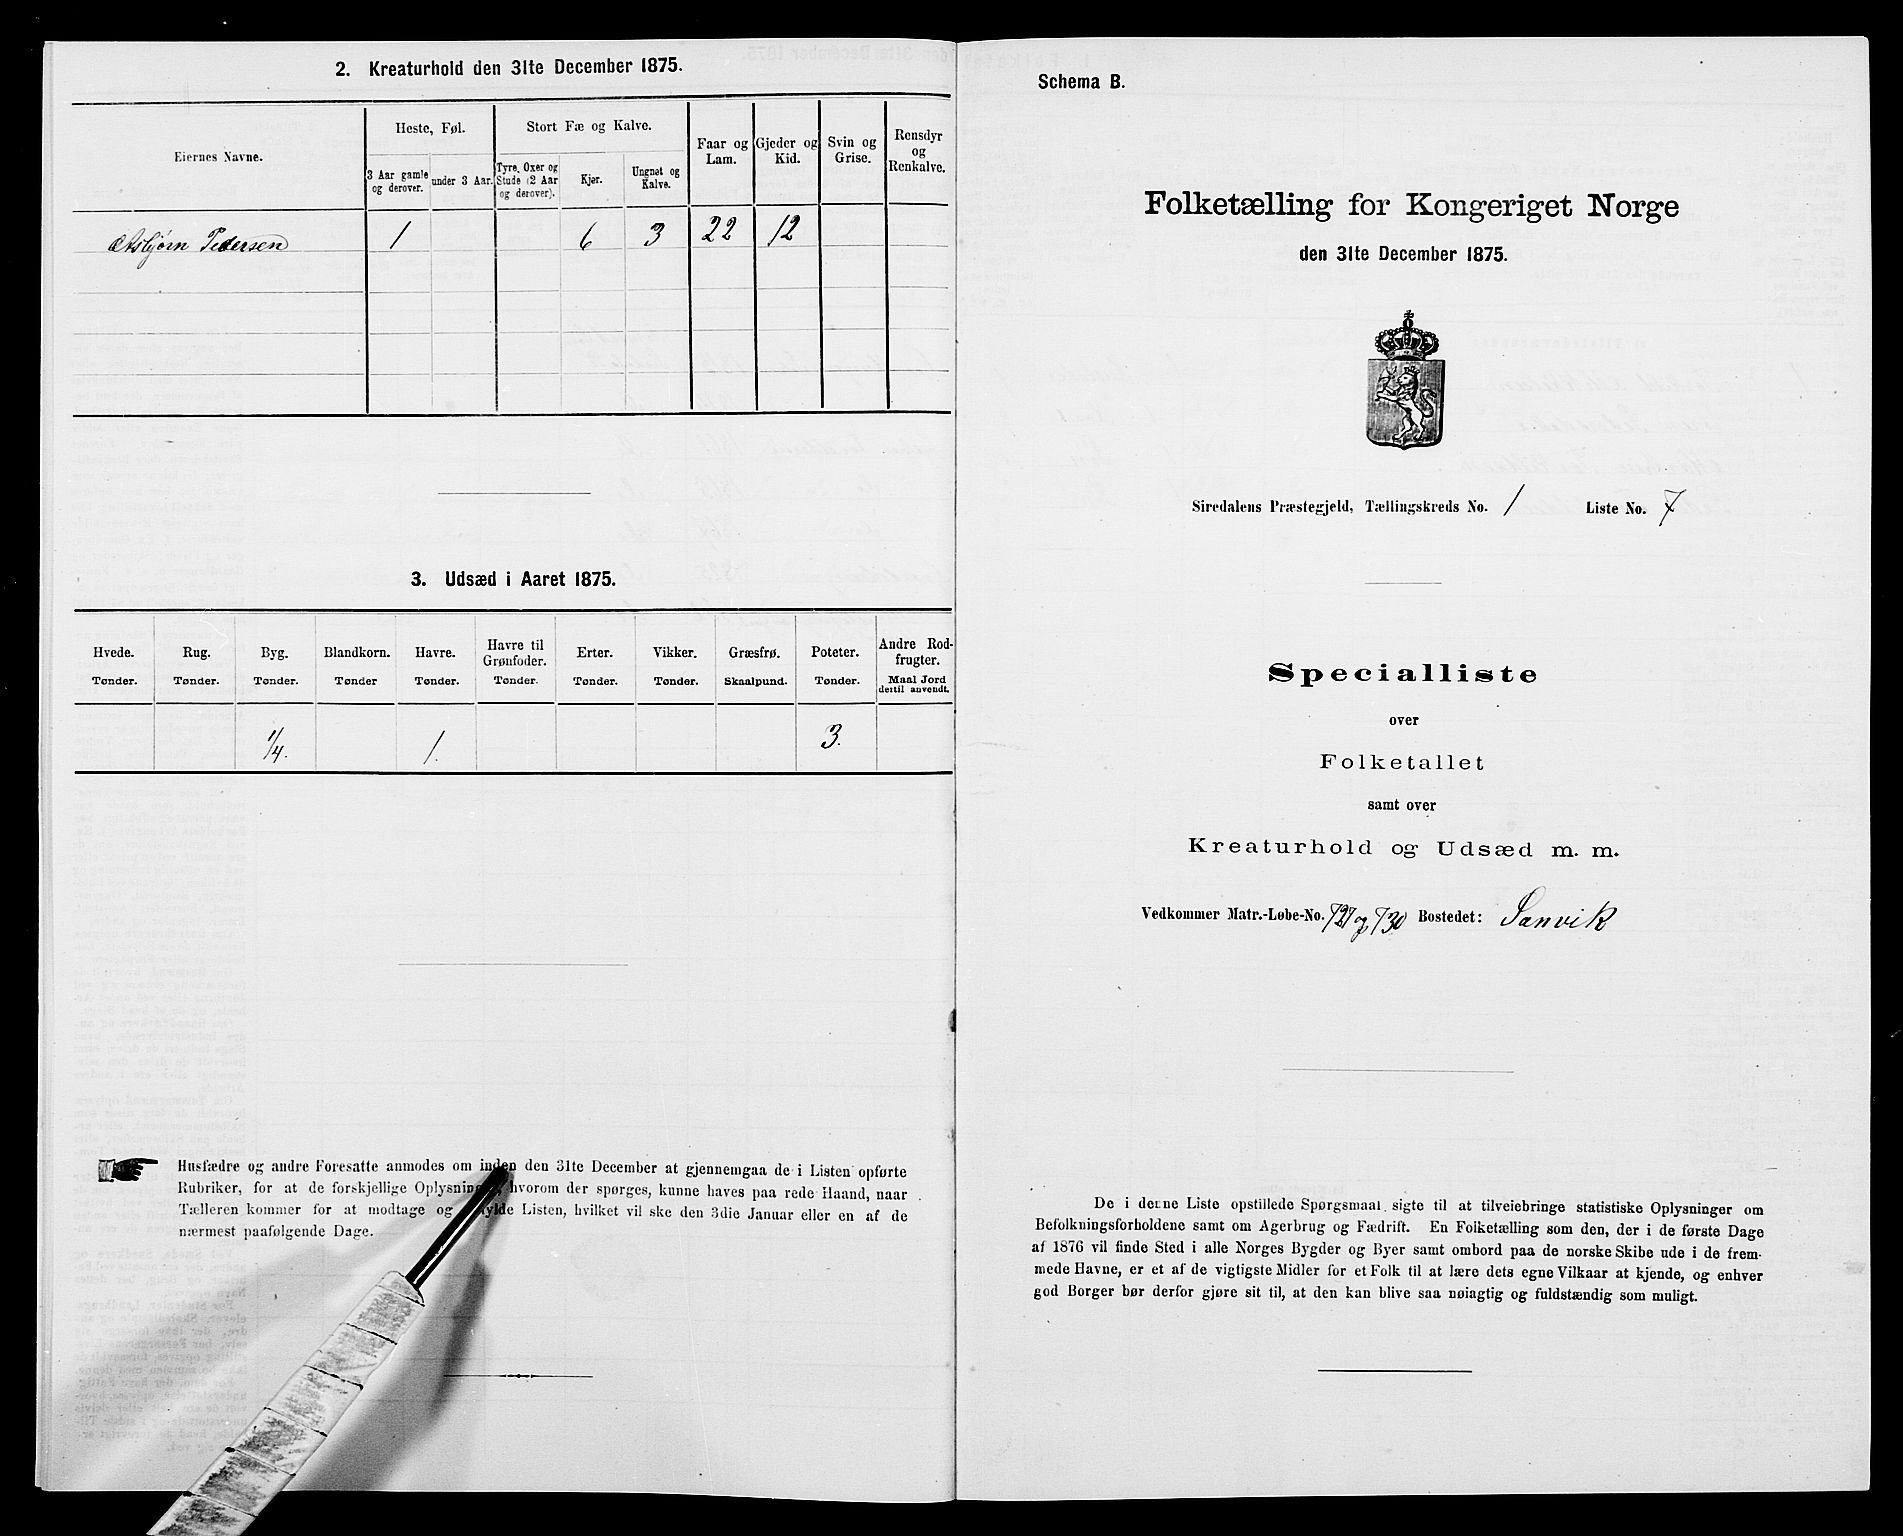 2. Kreaturhold den 31te December 1875.
Eiernes Navne.
Heste, Føl.
3 Aar gamle og derover.
under 3 Aar.
Stort Fæ og Kalve.
Tyre, Oxer og Stude (2 Aar og derover).
Kjør.
Ungnøt og Kalve.
Faar og Lam.
Gjeder og Kid.
Svin og Grise.
Rensdyr og Renkalve.
Asbjørn Pedersen 1 6 3 22 12
3. Udsæd i Aaret 1875.
Hvede. Rug. Byg. Blandkorn. Havre. Havre til Grønfoder. Erter. Vikker. Græsfrø. Poteter. Andre Rodfrugter.
Tønder. Tønder. Tønder. Tønder Tønder. Tønder. Tønder. Tønder. Skaalpund. Tønder. Maal Jord dertil anvendt.
1/4. 1. 3.
Husfædre og andre Foresatte anmodes om inden den 31te December at gjennemgaa de i Listen opførte
Rubriker, for at de forskjellige Oplysninger, hvorom der spørges, kunne haves paa rede Haand, naar
Tælleren kommer for at modtage og Listen, hvilket vil ske den 3die Januar eller en af de
nærmest paafølgende Dage.
Schema B.
Folketælling for Kongeriget Norge
den 31te December 1875.
Siredalens Præstegjeld, Tællingskreds No. 1 Liste No. 7
Specialliste
over
Folketallet
samt over
Kreaturhold og Udsæd m. m.
Vedkommer Matr.-Løbe-No. 727 og 730 Bostedet: Sanvik
De i denne Liste opstillede Spørgsmaal sigte til at tilveiebringe statistiske Oplysninger om
Befolkningsforholdene samt om Agerbrug og Fædrift. En Folketælling som den, der i de første Dage
af 1876 vil finde Sted i alle Norges Bygder og Byer samt ombord paa de norske Skibe ude i de frem-
mede Havne, er et af de vigtigste Midler for et Folk til at lære dets egne Vilkaar at kjende, og enhver
god Borger bør derfor gjøre sit til, at den kan blive saa nøiagtig og fuldstændig som muligt.